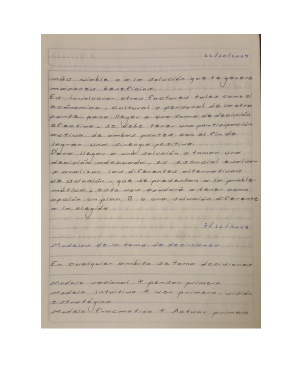 22/10/2024
más viable a a la solución que te genere
mayores beneficios.
Es involucrar otros factores tales como el
económico, cultural o personal de la otra
parte, para llegar a una toma de decisión
efectiva, se debe tener una participación
activa, de ambas partes con el fin de
lograr una sinergia positiva.
Para llegar a una solución o toma una
decisión adecuada, es esencial evaluar
y analizar las diferentes alternativas
de solución, que se presentan a la problemática
, esto nos ayudará a tener como
opción un plan B o una solución diferente
a la elegida
Modelos de la toma de decisiones
En cualquier ámbito se toma decisiones
Modelo racional * pensar primero
Modelo intuitivo * ver primero, visión
estratégica
Modelo * Actuar primero